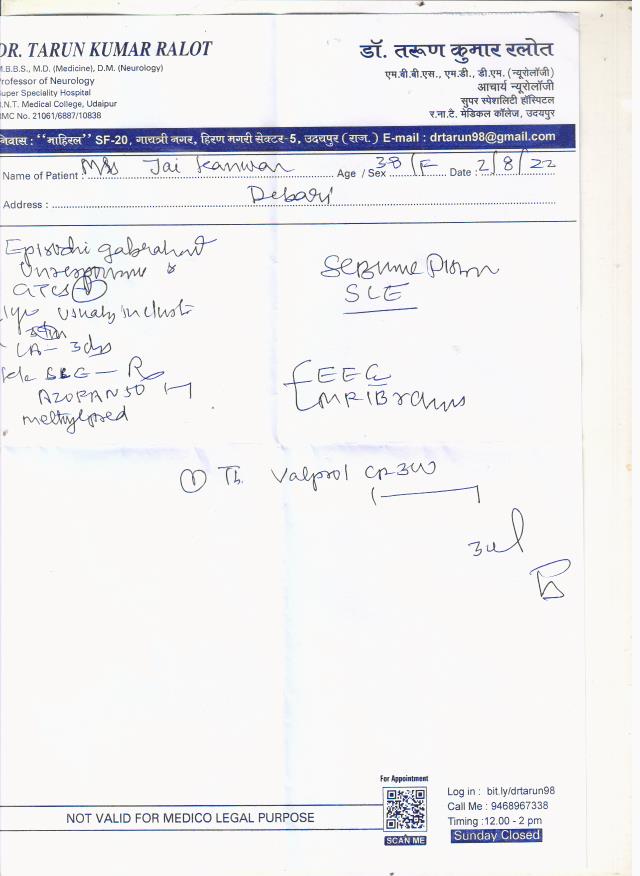 DR. TARUN KUMAR RALOT
M.B.B.S., M.D. (Medicine), D.M. (Neurology)
Professor of Neurology
Super Speciality Hospital
R.N.T. Medical College, Udaipur
RMC No. 21061/6887/10838
डॉ. तरूण कुमार रलोत
एम.बी.बी.एस., एम.डी., डी.एम. (न्यूरोलॉजी)
आचार्य न्यूरोलॉजी
सुपर स्पेशलिटी हॉस्पिटल
र.ना.टै. मेडिकल कॉलेज, उदयपुर
निवास : "माहिरल" SF-20, गायत्री नगर, हिरण मगरी सेक्टर-5, उदयपुर (राज.) E-mail : drtarun98@gmail.com
Name of Patient : Mrs Jai Kanwar Age / Sex 38/F Date : 2/8/22
Address : Debari
Episodic gabrahat
GTCS
usually in cluster
LA - 3ds
SLE
AZORAN 50
methylpred
Seizure
SLE
EEG
MRI Brain
① Tb. Valprol CR 300
For Appointment
SCAN ME
Log in : bit.ly/drtarun98
Call Me : 9468967338
Timing : 12.00 - 2 pm
Sunday Closed
NOT VALID FOR MEDICO LEGAL PURPOSE